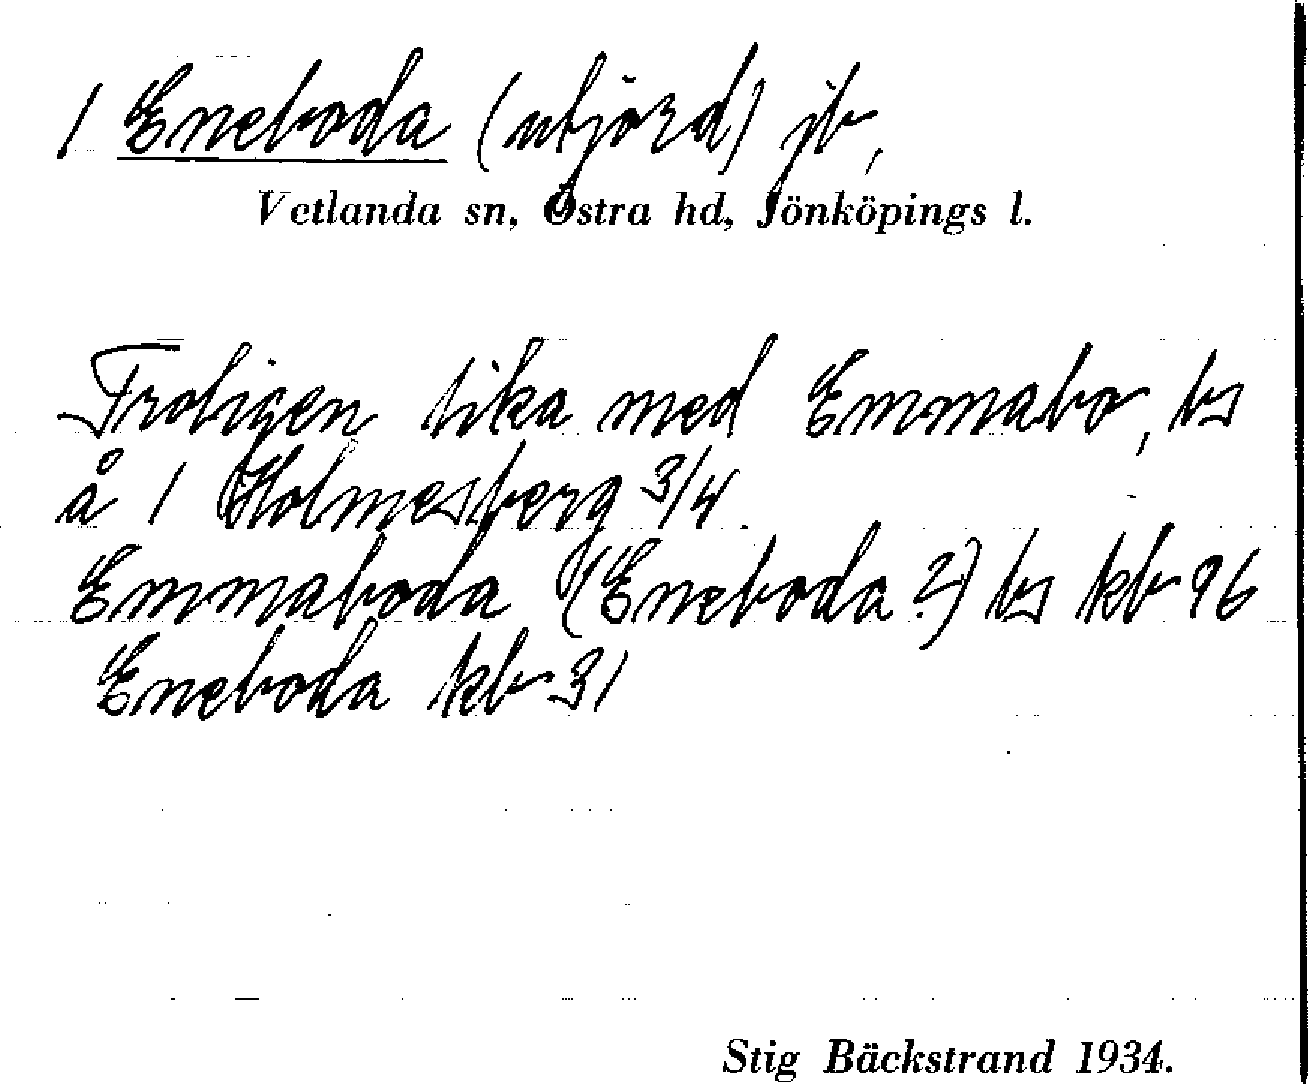 1 Eneboda (utjord) jb,
Vetlanda sn, Östra hd, Jönköpings l.
Troligen lika med Emmabo, ts
å 1 Holmesberg 3/4.
Emmaboda (Eneboda?) ts kb 96
Eneboda kb 31
Stig Bäckstrand 1934.